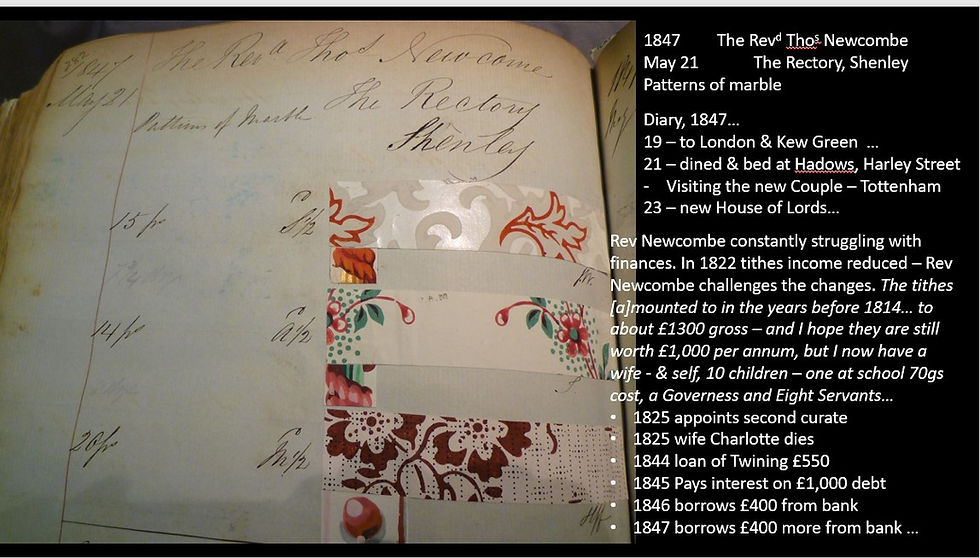 1847
May 21
The Revd Thos Newcome
The Rectory
Shenley
Patterns of Marble
15 ps
14 ps
20 ps
1847 The Revd Thos Newcombe
May 21 The Rectory, Shenley
Patterns of marble
Diary, 1847…
19 – to London & Kew Green …
21 – dined & bed at Hadows, Harley Street
- Visiting the new Couple – Tottenham
23 – new House of Lords…
Rev Newcombe constantly struggling with
finances. In 1822 tithes income reduced – Rev
Newcombe challenges the changes. The tithes
[a]mounted to in the years before 1814… to
about £1300 gross – and I hope they are still
worth £1,000 per annum, but I now have a
wife - & self, 10 children – one at school 70gs
cost, a Governess and Eight Servants…
• 1825 appoints second curate
• 1825 wife Charlotte dies
• 1844 loan of Twining £550
• 1845 Pays interest on £1,000 debt
• 1846 borrows £400 from bank
• 1847 borrows £400 more from bank …